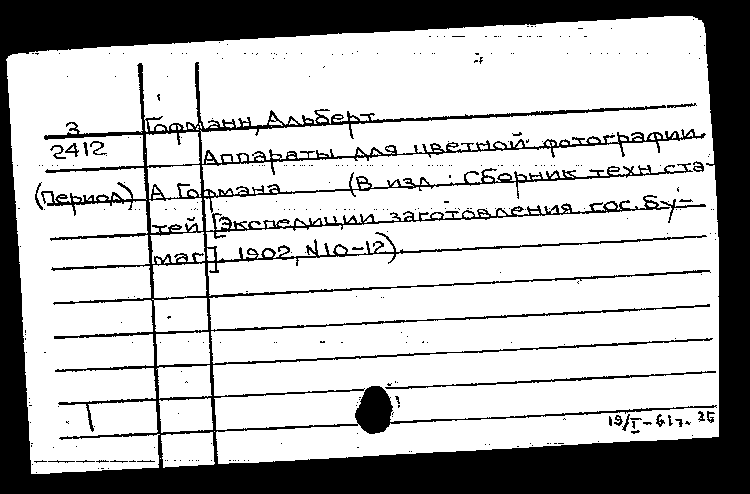 З
2412
(Период)
Гофманн, Альберт
Аппараты для цветной фотографии
А. Гофмана (В изд.: Сборник техн ста-
тей [Экспедиции заготовления гос. бу-
маг]. 1902, N10-12).
19/I-61г.